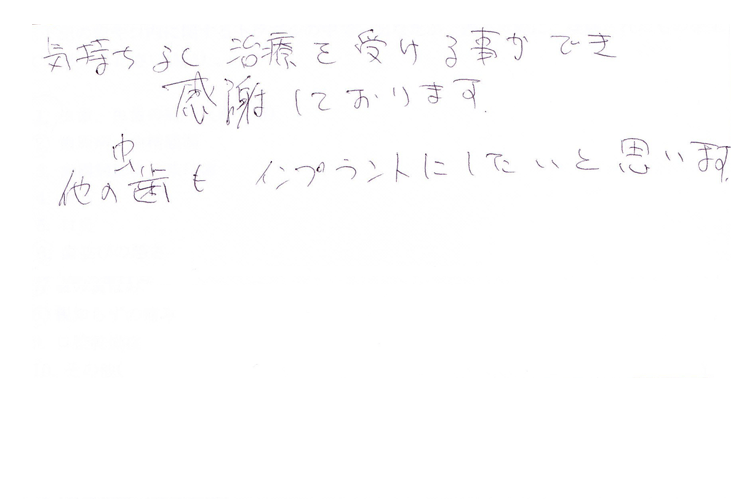 気持ちよく治療を受ける事ができ
感謝しております。
他の虫歯もインプラントにしたいと思います。